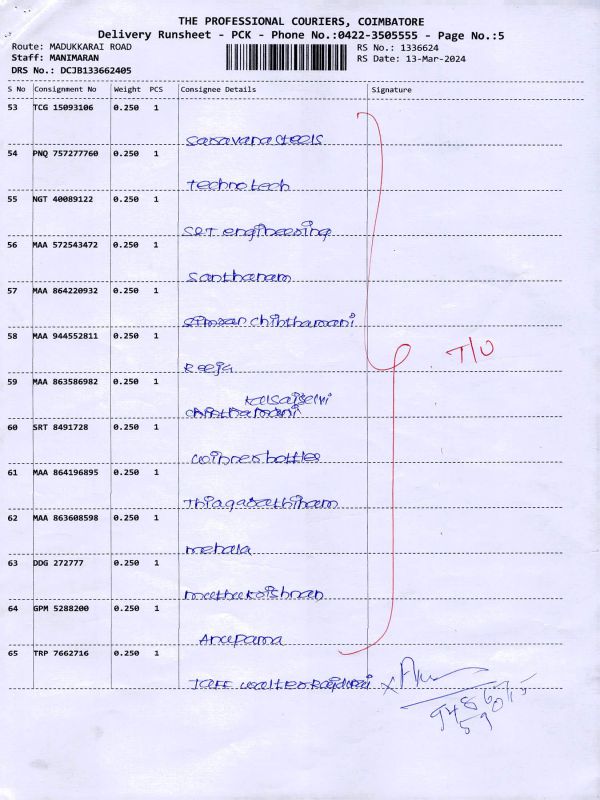 THE PROFESSIONAL COURIERS, COIMBATORE
Delivery Runsheet - PCK - Phone No.:0422-3505555 - Page No.:5
Route: MADUKKARAI ROAD RS No.: 1336624
Staff: MANIMARAN RS Date: 13-Mar-2024
DRS No.: DCJB133662405
S No Consignment No Weight PCS Consignee Details Signature
53 TCG 15093106 0.250 1
Saravana steels
54 PNQ 757277760 0.250 1
Techno tech
55 NGT 40089122 0.250 1
S&T engineering
56 MAA 572543472 0.250 1
Santhanam
57 MAA 864220932 0.250 1
Simran chinthamani
58 MAA 944552811 0.250 1
Reeja
T/U
59 MAA 863586982 0.250 1
Kalaiselvi
chinthamani
60 SRT 8491728 0.250 1
bottles
61 MAA 864196895 0.250 1
Thiagarathinam
62 MAA 863608598 0.250 1
mehala
63 DDG 272777 0.250 1
muthukrishnan
64 GPM 5288200 0.250 1
Anupama
65 TRP 7662716 0.250 1
Jaff walter